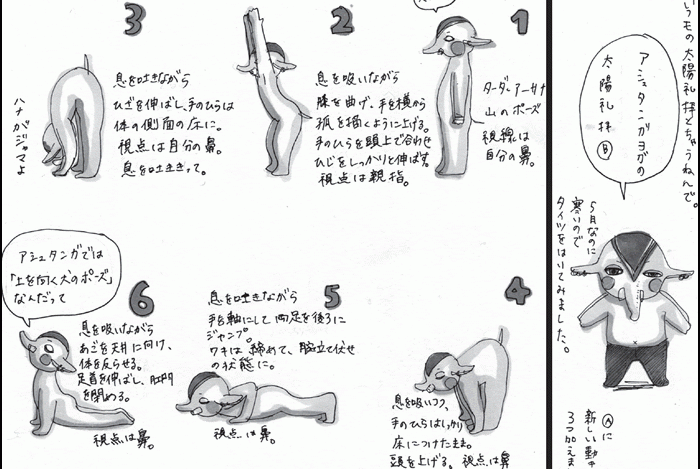 いつもの太陽礼拝とちゃうねんで。
アシュタンガヨガの
太陽礼拝 Ⓑ
5月なのに
寒いので
タイツをはいてみました。
Ⓐに
新しい動き
3つ加えま
1
ターダーアーサナ
山のポーズ
視線は
自分の鼻。
2
息を吸いながら
膝を曲げ、手を横から
弧を描くように上げる。
手のひらを頭上で合わせ
ひじをしっかりと伸ばす。
視点は親指。
3
息を吐きながら
ひざを伸ばし、手のひらは
体の側面の床に。
視点は自分の鼻。
息を吐ききって。
ハナがジャマよ
4
息を吸いつつ、
手のひらはしっかり
床につけたまま。
頭を上げる。視点は鼻
5
息を吐きながら
手を軸にして両足を後ろに
ジャンプ。
ワキは締めて、腕立て伏せ
の状態に。
視点は鼻。
6
アシュタンガでは
「上を向く犬のポーズ」
なんだって
息を吸いながら
あごを天井に向け、
体を反らせる。
足首を伸ばし、肛門
を閉める。
視点は鼻。